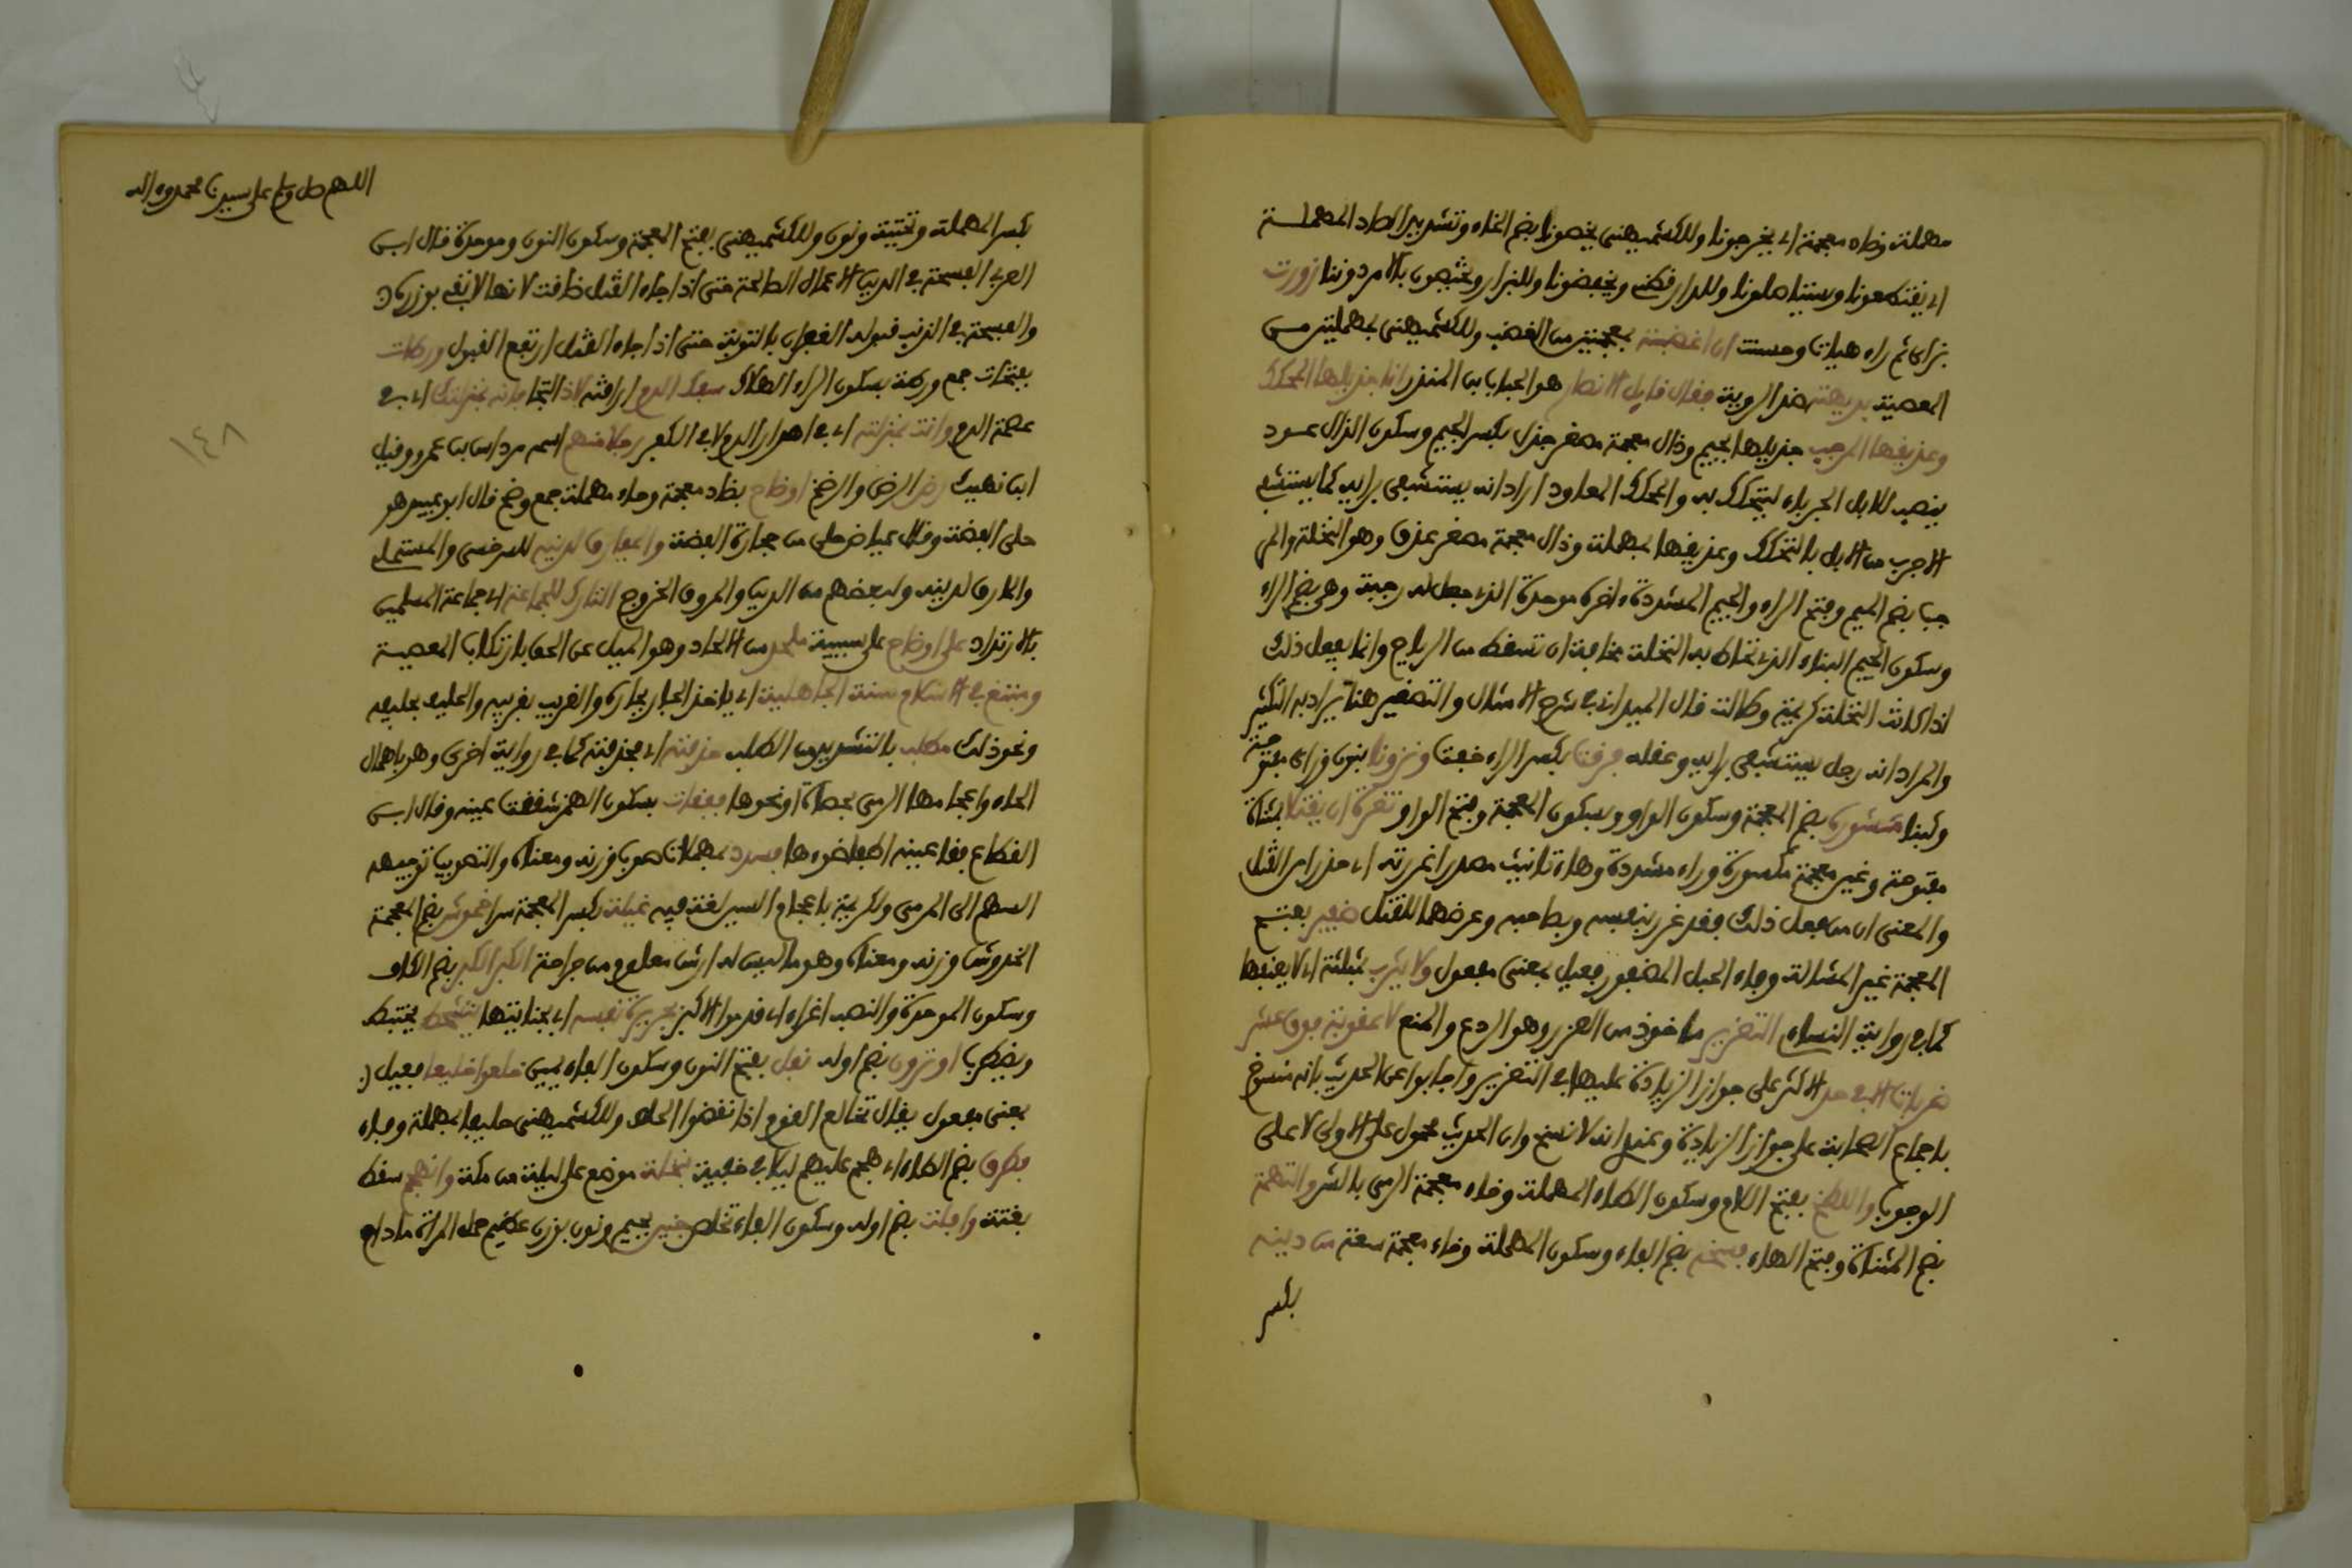 مهملة وضاد معجمة اي يخرجونا وللكشميهني يخصونا بضم الخاء وتشديد الصاد المهملة
اي يقتطعونا ويستاصلونا وللدارقطني ويخفضونا وللبزار ويختصون بالامر دوننا زورت
بزاي ثم راء هيات وحسنت ان اغضبه بمعجمتين من الغضب وللكشميهني بمهملتين من
المعصية بديهته ضد الروية فقال قايل الانصار هو الحباب بن المنذر انا جذيلها المحكك
وعذيقها المرجب جذيلها بجيم وذال معجمة مصغر جذل بكسر الجيم وسكون الذال عود
ينصب للابل الجرباء لتتحكك به والمحكك المعاود اراد انه يستشفى برايه كما يستشفي
الاجرب من الابل بالتحكك وعذيقها بمهملة وذال معجمة مصغر عذق وهو النخلة والمر
جب بضم الميم وفتح الراء والجيم المشددة اخره موحدة الذي جعل له رجبة وهي بضم الراء
وسكون الجيم البناء الذي تحاط به النخلة مخافة ان تسقط من الرياح وانما يفعل ذلك
اذا كانت النخلة كريمة وطالت قال الميداني في شرح الامثال والتصغير هنا يراد به التكبير
والمراد انه رجل يستشفى برايه وعقله فرقت بكسر الراء خفت ونزونا بنون وزاي مفتوحة
وثبنا مشورة بضم المعجمة وسكون الواو وبسكون المعجمة وفتح الواو تغرة ان يقتلا بمثناة
مفتوحة وغين معجمة مكسورة وراء مشددة وهاء تانيث مصدر اغررته اي حذرا من القتل
والمعنى ان من فعل ذلك فقد غرر بنفسه وبصاحبه وعرضهما للقتل ضفير بفتح
المعجمة غير المشالة وفاء الحبل المضفور فعيل بمعنى مفعول ولا يثرب بمثلثة اي لا يعنفها
كما في رواية النساء التعزير ماخوذ من العزر وهو الردع والمنع لا عقوبة فوق عشر
ضربات الا في حد الاكثر على جواز الزيادة عليها في التعزير واجابوا عن الحديث بانه منسوخ
باجماع الصحابة على جواز الزيادة وعندي انه لا نسخ وان الحديث محمول على الاولى لا على
الوجوب واللطخ بفتح اللام وسكون الطاء المهملة وخاء معجمة الرمي بالشر والتهمة
بضم المثناة وفتح الهاء فسحة بضم الفاء وسكون المهملة وحاء معجمة سعة من دينه
بكسر
اللهم صل وسلم على سيدنا محمد واله
بكسر المهملة وتحتية ونون وللكشميهني بفتح المعجمة وسكون النون وموحدة قال ابن
العربي الفسحة في الدين الاعمال الصالحة حتى اذا جاء القتل ضاقت لانها لا تفي بوزره
والفسحة في الذنب قبوله الغفران بالتوبة حتى اذا جاء القتل ارتفع القبول ورطات
بفتحات جمع ورطة بسكون الراء الهلاك سفك الدم اراقته لاذ التجا فانه بمنزلتك اي في
عصمة الدم وانت بمنزلته اي في اهدار الدم لا في الكفر رجلا منهم اسمه مرداس بن عمرو وقيل
ابن نهيك رض الرض والرضخ اوضاح بضاد معجمة وحاء مهملة جمع وضح قال ابو عبيد هو
حلى الفضة وقال عياض حلى من حجارة الفضة والمفارق لدينه للسرخسي والمستملي
والمارق لدينه ولبعضهم من الدين والمروق الخروج التارك للجماعة اي جماعة المسلمين
بالارتداد على اوضاح على سببية ملحد من الالحاد وهو الميل عن الحق بارتكاب المعصية
ومبتغ في الاسلام سنة الجاهلية اي ياخذ الجار بجاره والقريب بقريبه والحليف بحليفه
ونحو ذلك مطلب بالتشديد من الطلب حذفته اي فحذفته كما في رواية اخرى وهو باهمال
الحاء واعجامها الرمي بحصاة او نحوها ففقات بسكون الهمز شققت عينه وقال ابن
القطاع فقا عينه اطفا ضوءها فسدد بمهملات صوب وزنه ومعناه والتصويب توجيه
السهم الى المرمى ولكريمة باعجام السين لغة فيه غيلة بكسر المعجمة سرا خموش بضم المعجمة
الخدوش وزنه ومعناه وهو ما ليس له ارش معلوم من جراحة الكبر الكبر بضم الكاف
وسكون الموحدة والنصب اغراء اي قدموا الاكبر بجريرة نفسه اي بجنايتها يتشحط يختبط
ويضطرب او ترون بضم اوله نفل بفتح النون وسكون الفاء يمين خلعوا خليعا فعيل
بمعنى مفعول يقال تخالع القوم اذا نقضوا الحلف وللكشميهني حليفا بمهملة وفاء
فطرق بضم الطاء اي هجم عليهم ليلا في خفية بنخلة موضع على ليلة من مكة وانهجم سقط
بغتة وافلت بضم اوله وسكون الفاء تخلص جنين بجيم ونون بوزن عظيم حمل المراة ما دام
١٤٨